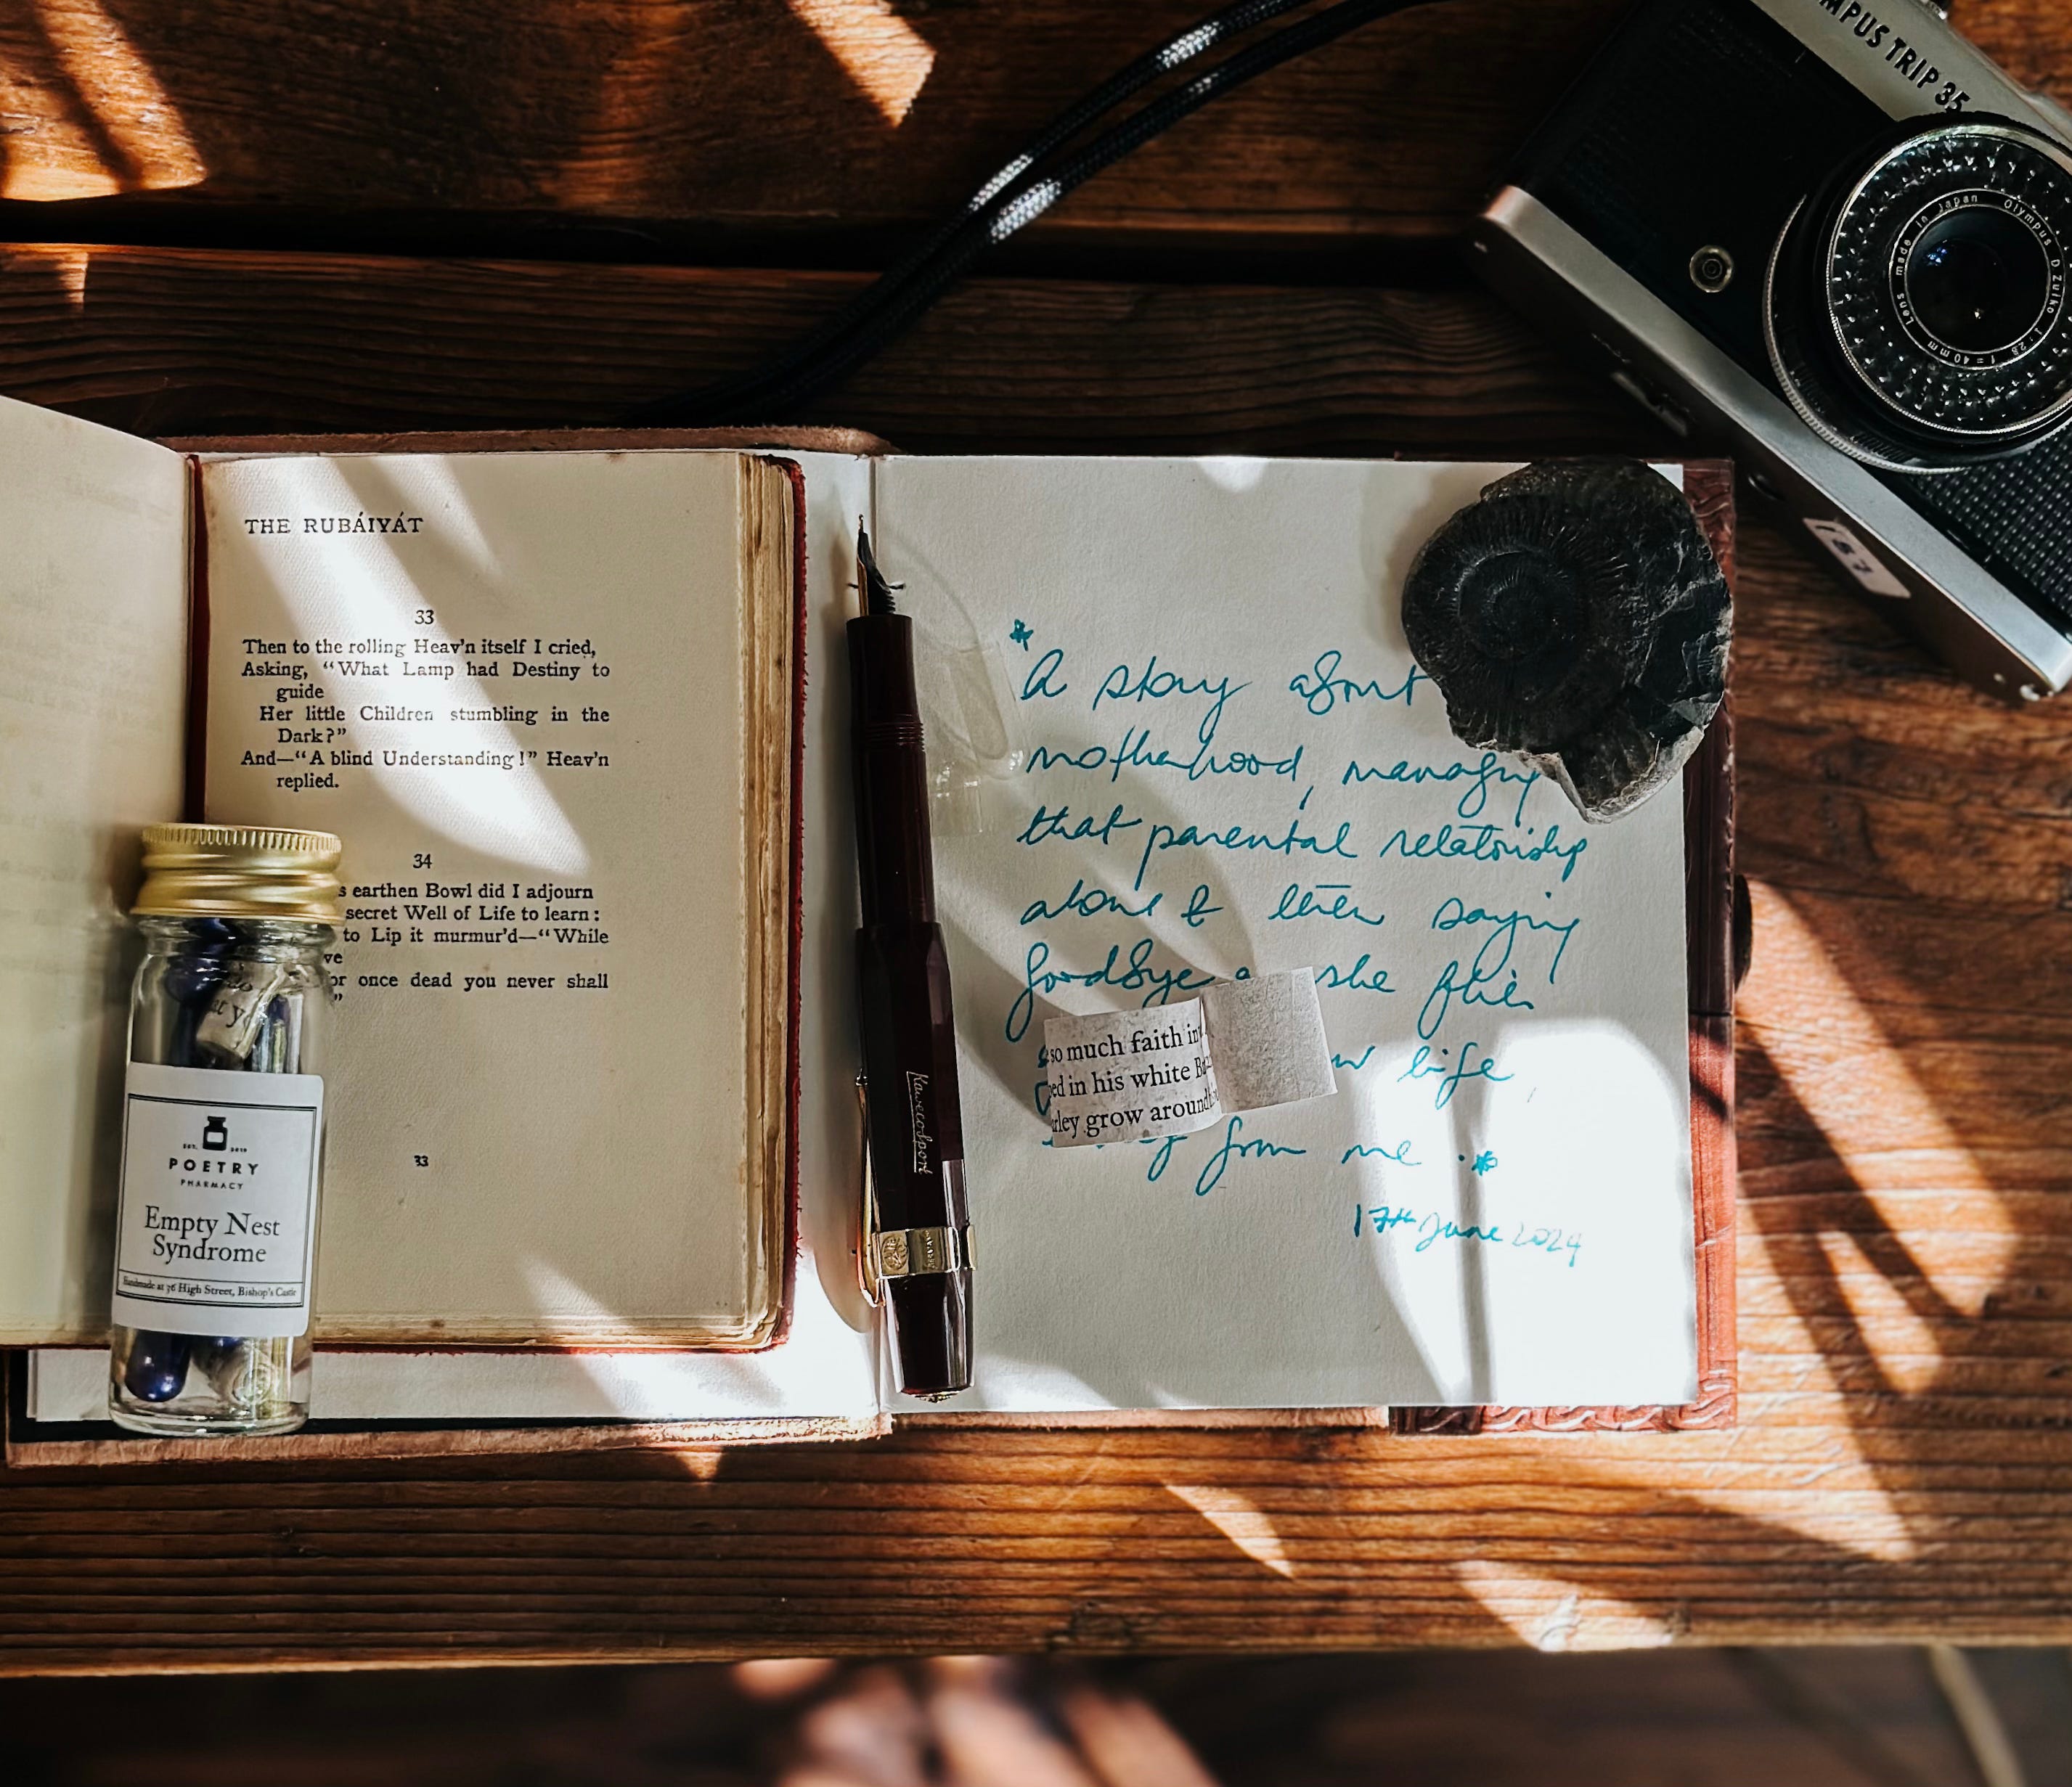 MPUS TRIP 35
Lens made in Japan Olympus D.Zuiko 1:2.8 f=40mm
THE RUBÁIYÁT
33
Then to the rolling Heav'n itself I cried,
Asking, “What Lamp had Destiny to
guide
Her little Children stumbling in the
Dark?”
And—“A blind Understanding!” Heav'n
replied.
34
s earthen Bowl did I adjourn
secret Well of Life to learn:
to Lip it murmur'd—“While
ve
or once dead you never shall
”
33
EST. 2019
POETRY
PHARMACY
Empty Nest
Syndrome
Handmade at 36 High Street, Bishop's Castle
Kaweco Sport
*A story about
motherhood, managing
that parental relationship
alone & then saying
goodbye a she flies
w life
from me.*
17th June 2024
so much faith in
ed in his white B
rley grow around